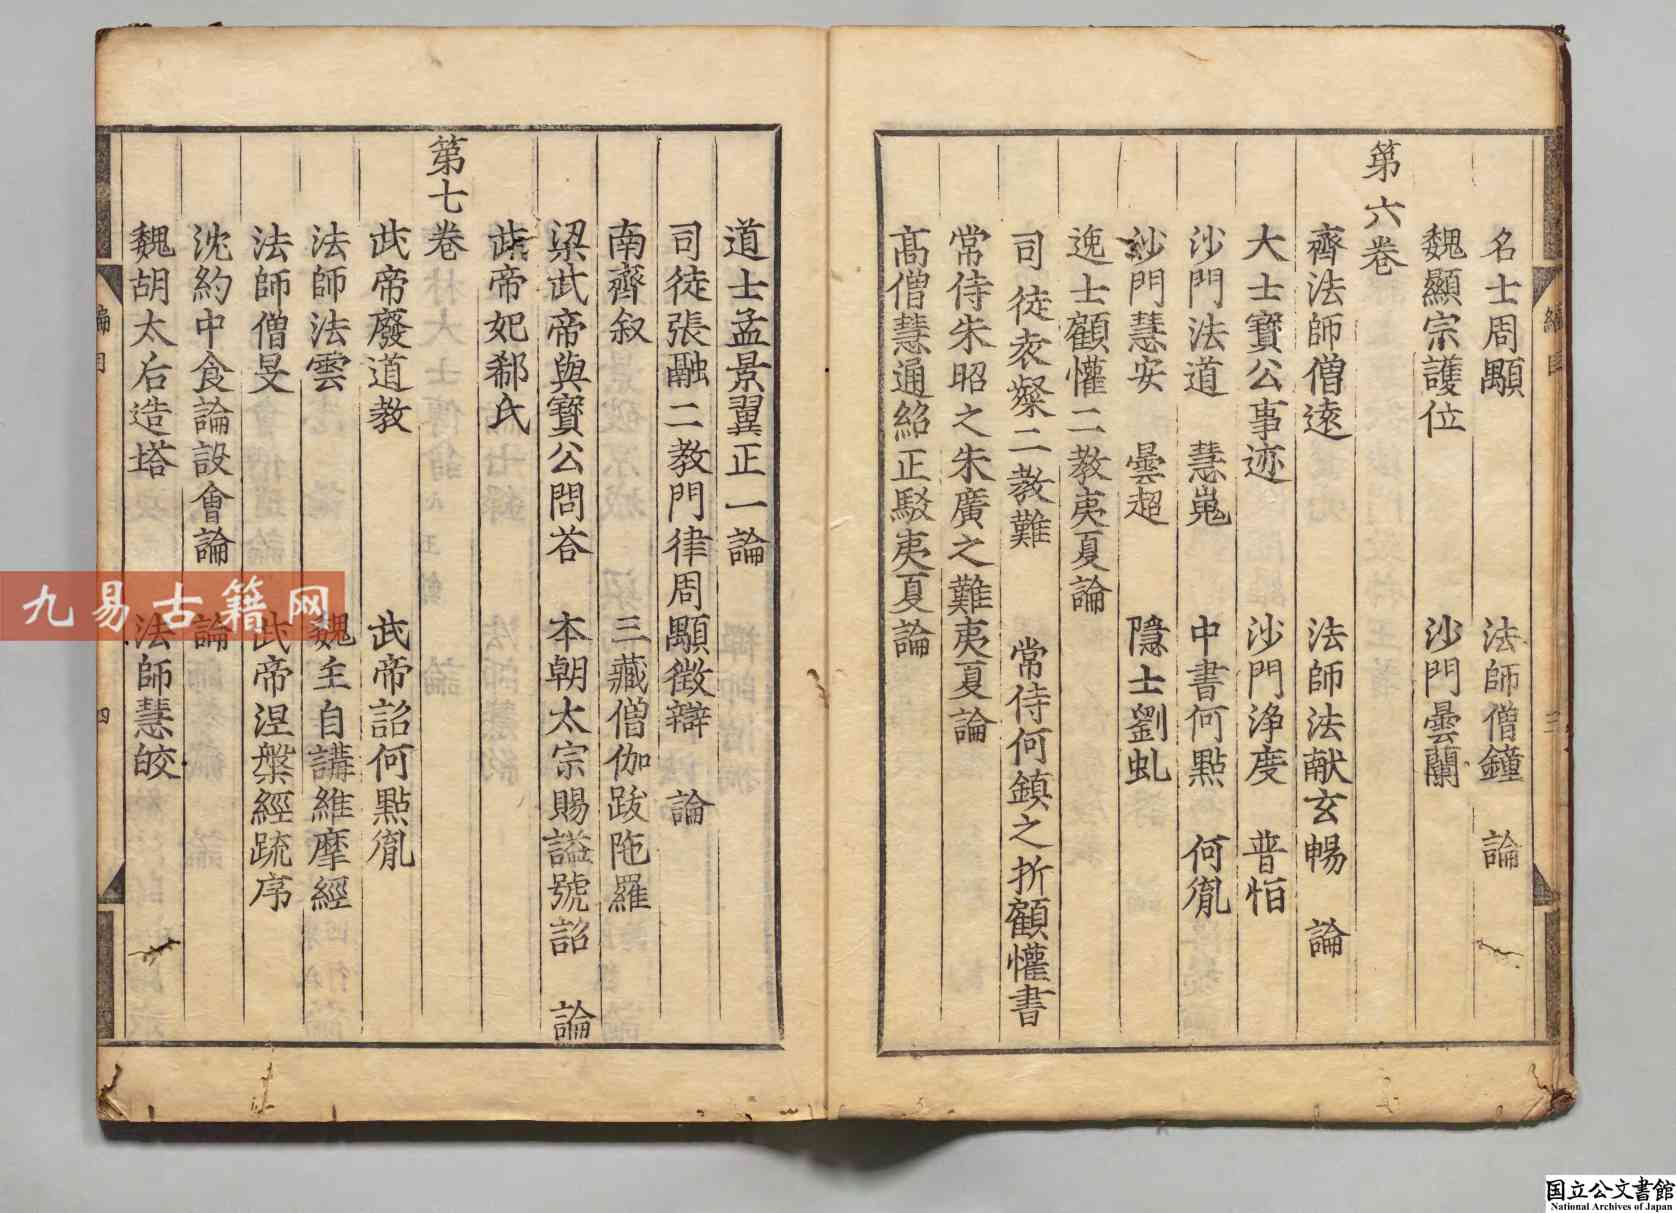 名士周顒　法師僧鐘　論
魏顯宗護位　沙門曇蘭
第六卷
齊法師僧遠　法師法献玄暢　論
大士寳公事迹　沙門浄度　普怕
沙門法道　慧嵬　中書何點　何胤
沙門慧安　曇超　隱士劉虬
逸士顧懽二教夷夏論
司徒袁粲二教難　常侍何鎮之折顧懽書
常侍朱昭之朱廣之難夷夏論
髙僧慧通紹正駁夷夏論
編目
三
道士孟景翼正一論
司徒張融二教門律周顒徴辯　論
南齊叙　三藏僧伽跋陁羅
梁武帝與寳公問荅　本朝太宗賜謚號詔　論
武帝妃郗氏
第七卷
武帝廢道教　武帝詔何點胤
法師法雲　魏主自講維摩經
法師僧旻　武帝涅槃經疏序
沈約中食論設會論　論
魏胡太后造塔　法師慧皎
編目
四
九易古籍网
国立公文書館
National Archives of Japan